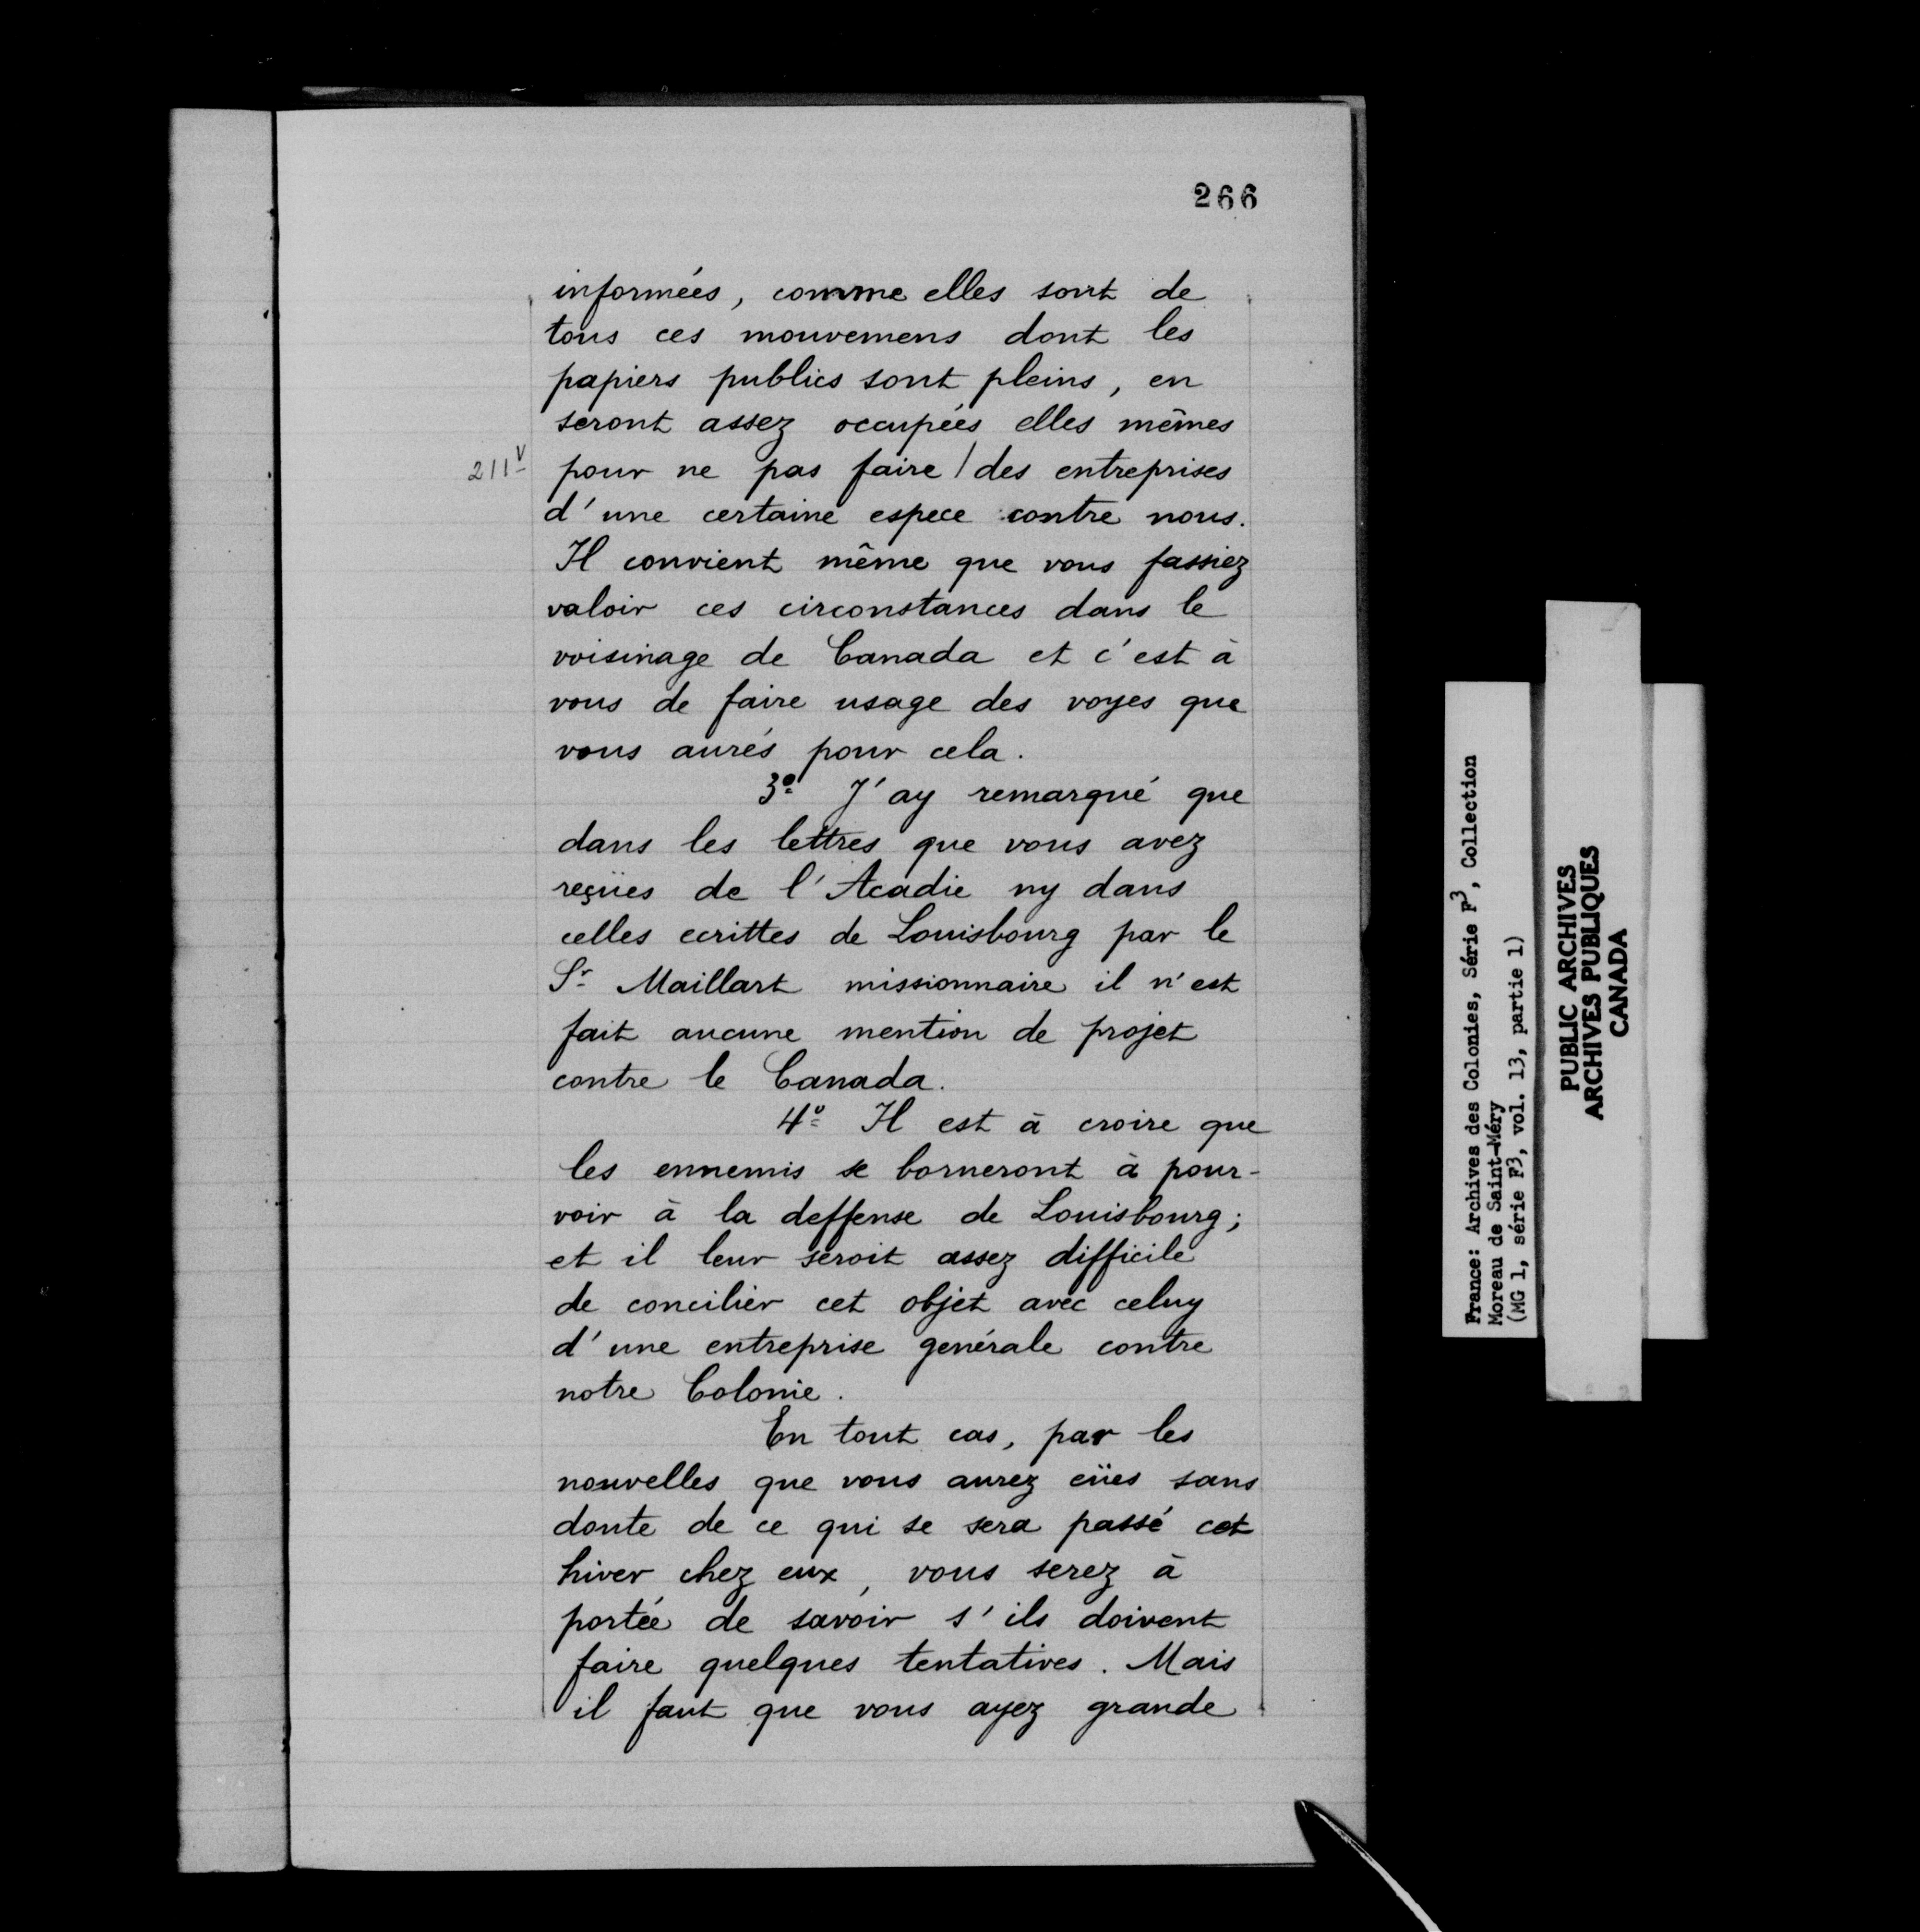 266
informées, comme elles sont de
tous ces mouvemens dont les
papiers publics sont pleins, en
seront assez occupées elles mêmes
211v pour ne pas faire / des entreprises
d'une certaine espece contre nous.
Il convient même que vous fassiez
valoir ces circonstances dans le
voisinage de Canada et c'est à
vous de faire usage des voyes que
vous aurés pour cela.
3º J'ay remarqué que
dans les lettres que vous avez
reçües de l'Acadie ny dans
celles ecrittes de Louisbourg par le
Sr Maillart missionnaire il n'est
fait aucune mention de projet
contre le Canada.
4º Il est à croire que
les ennemis se borneront à pour-
voir à la deffense de Louisbourg;
et il leur seroit assez difficile
de concilier cet objet avec celuy
d'une entreprise genérale contre
notre Colonie.
En tout cas, par les
nouvelles que vous aurez eües sans
doute de ce qui se sera passé cet
hiver chez eux, vous serez à
portée de savoir s'ils doivent
faire quelques tentatives. Mais
il faut que vous ayez grande
France: Archives des Colonies, Série F3, Collection
Moreau de Saint-Méry
(MG 1, série F3, vol. 13, partie 1)
PUBLIC ARCHIVES
ARCHIVES PUBLIQUES
CANADA